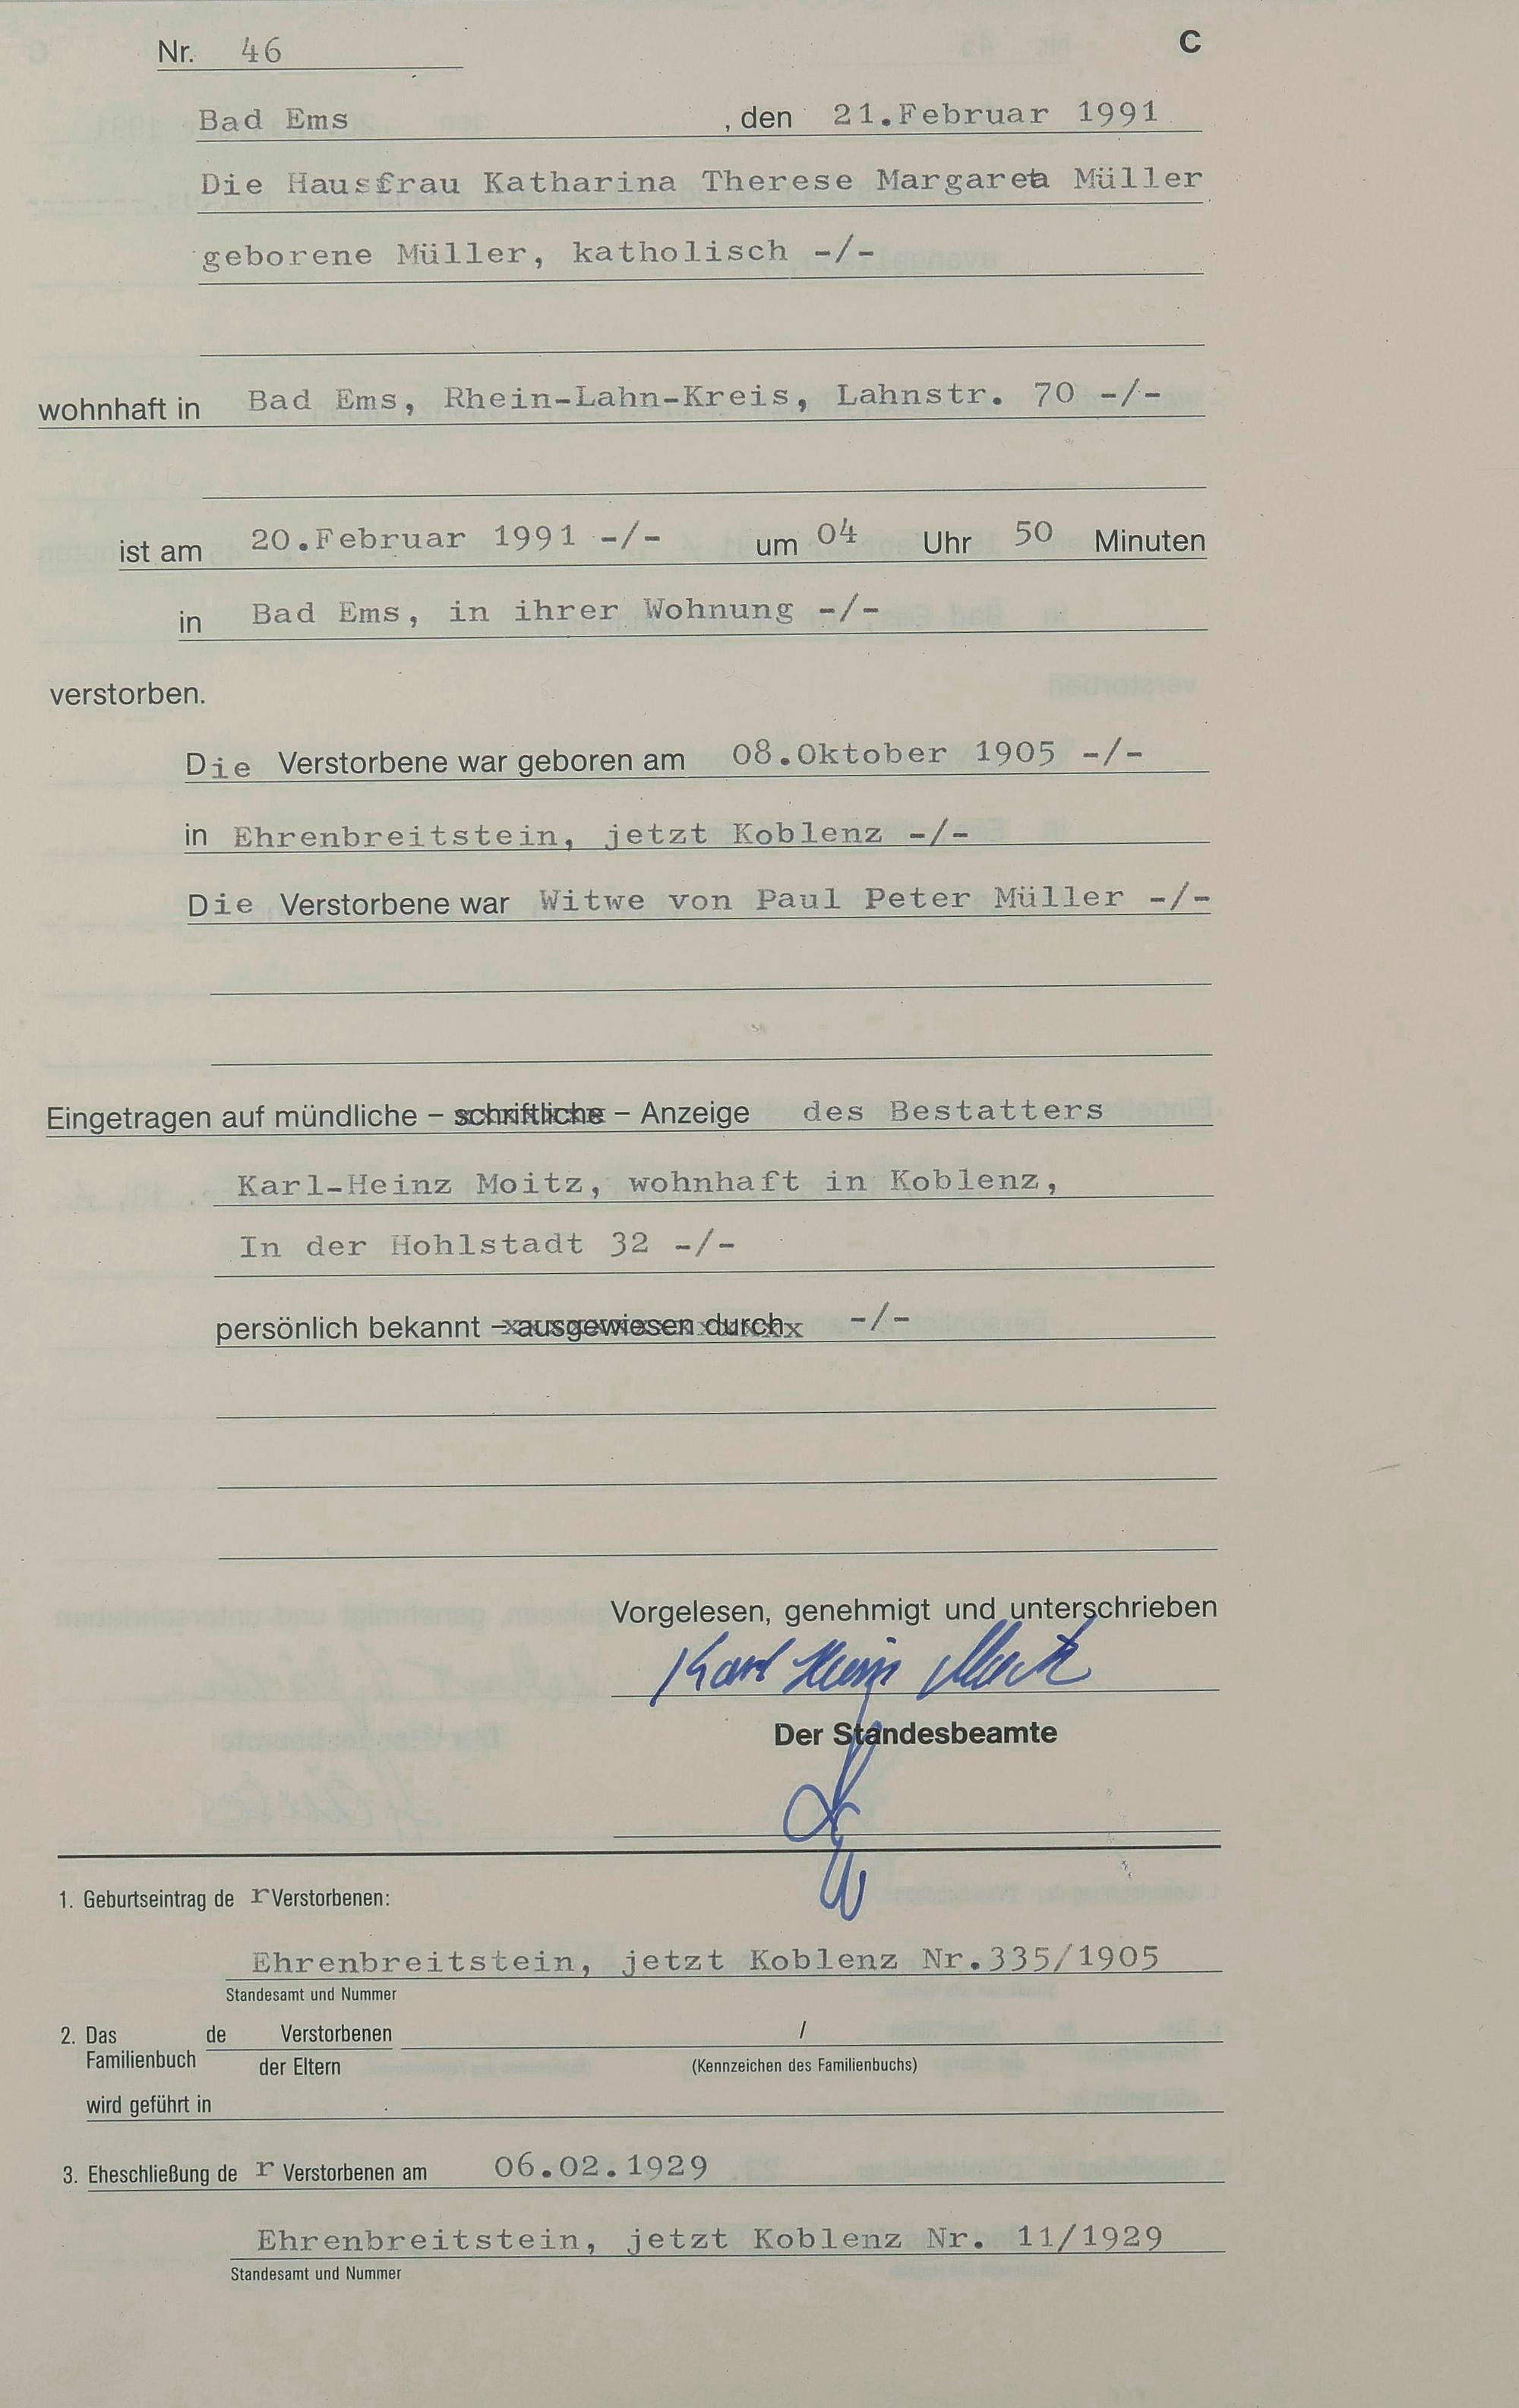 Nr. 46
C
Bad Ems , den 21.Februar 1991
Die Hausfrau Katharina Therese Margareta Müller
geborene Müller, katholisch -/-
wohnhaft in Bad Ems, Rhein-Lahn-Kreis, Lahnstr. 70 -/-
ist am 20.Februar 1991 -/- um 04 Uhr 50 Minuten
in Bad Ems, in ihrer Wohnung -/-
verstorben.
Die Verstorbene war geboren am 08.Oktober 1905 -/-
in Ehrenbreitstein, jetzt Koblenz -/-
Die Verstorbene war Witwe von Paul Peter Müller -/-
Eingetragen auf mündliche – schriftliche – Anzeige des Bestatters
Karl-Heinz Moitz, wohnhaft in Koblenz,
In der Hohlstadt 32 -/-
persönlich bekannt – ausgewiesen durch -/-
Vorgelesen, genehmigt und unterschrieben
Karl Heinz Moitz
Der Standesbeamte
1. Geburtseintrag de r Verstorbenen:
Ehrenbreitstein, jetzt Koblenz Nr.335/1905
Standesamt und Nummer
2. Das Familienbuch de Verstorbenen /
der Eltern (Kennzeichen des Familienbuchs)
wird geführt in
3. Eheschließung de r Verstorbenen am 06.02.1929
Ehrenbreitstein, jetzt Koblenz Nr. 11/1929
Standesamt und Nummer